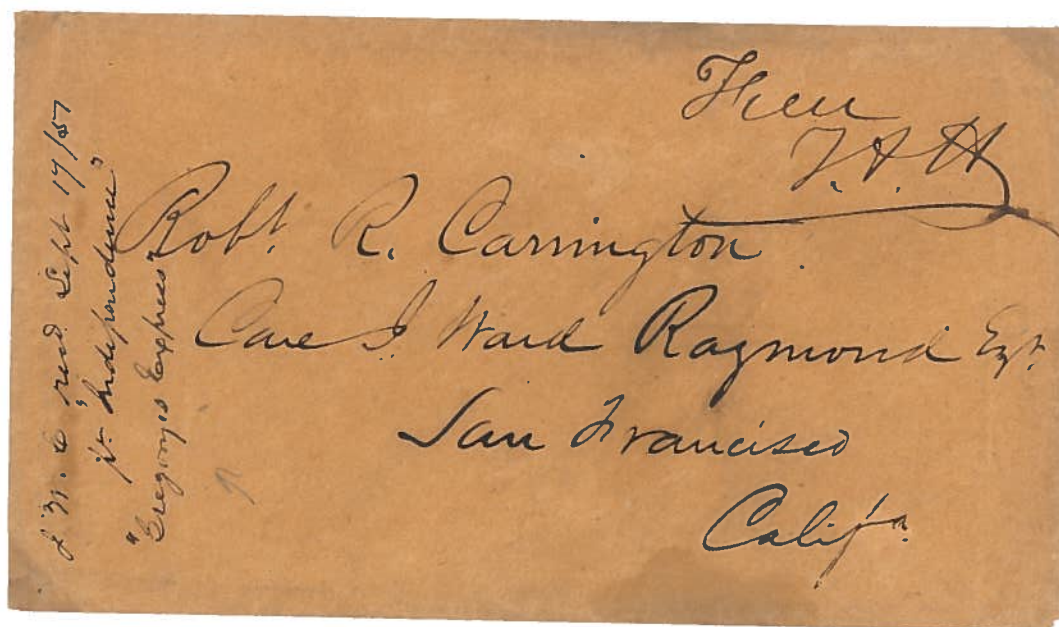 Free
Robt. R. Carrington
Care J Ward Raymond Esqr.
San Francisco
Califa.
recd Sept 17/51
pr Independence"
"Gregory's Express"